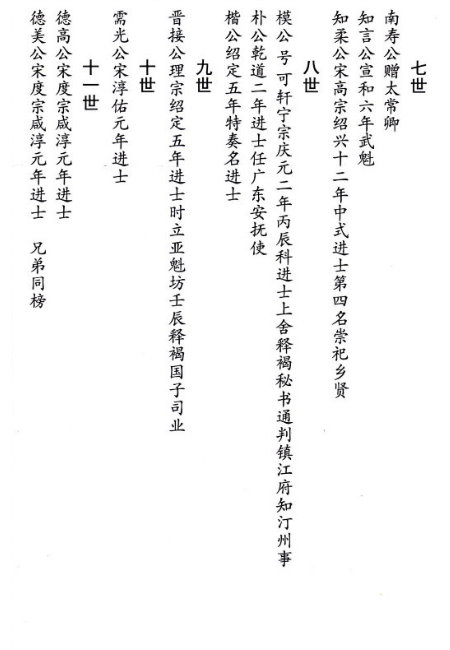 七世
南寿公赠太常卿
知言公宣和六年武魁
知柔公宋高宗绍兴十二年中式进士第四名崇祀乡贤
八世
模公号可轩宁宗庆元二年丙辰科进士上舍释褐秘书通判镇江府知汀州事
朴公乾道二年进士任广东安抚使
楷公绍定五年特奏名进士
九世
晋接公理宗绍定五年进士时立亚魁坊壬辰释褐国子司业
十世
需光公宋淳佑元年进士
十一世
德高公宋度宗咸淳元年进士
德美公宋度宗咸淳元年进士 兄弟同榜